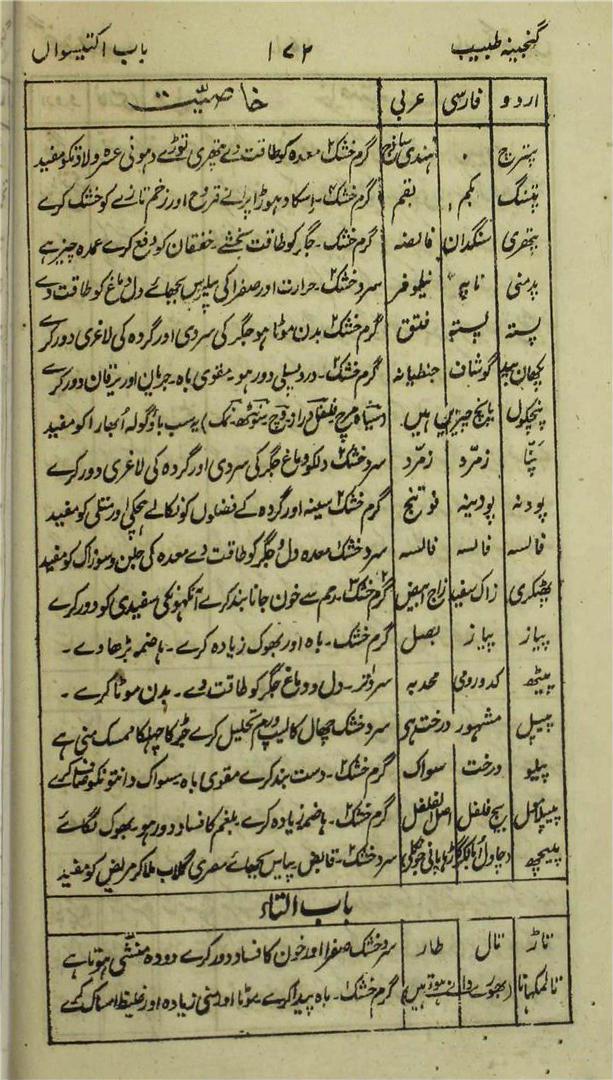 گنجینہ طبیب ۱۷۲ باب اکتیسواں
اردو فارسی عربی خاصیّت
پترج . ہندی ساذج گرم خشک ۲ معدہ کو طاقت دے پتھری توڑے دھونی عسر ولادتکو مفید
پتنگ بکم بقم گرم خشک ۲۔ اسکا دہوڑا پرانے قروح اور زخم تازے کو خشک کرے
پتھری سنگدان قانصہ گرم خشک۔ جگر کو طاقت بخشے۔ خفقان کو دفع کرے عمدہ چیز ہے
پدمنی نیلوفر سرد خشک ۲۔ حرارت اور صفرا کی پیاس بجھائے دل دماغ کو طاقت دے
پستہ پستہ فستق گرم خشک ۲ بدن موٹا ہو جگر کی سردی اور گردہ کی لاغری دور کرے
پکھان بید گوشاف جنطیانہ گرم خشک ۲۔ درد پسلی دور ہو۔ مقوی باہ۔ جریان اور یرقان دور کرے
پنچکول پانچ چیزیں ہیں۔ یہ سب باؤگولہ اپھارا کو مفید
پنّا زمرّد زمّرد سرد خشک ۲ دلکو دماغ جگر کی سردی اور گردہ کی لاغری دور کرے
پودنہ پودینہ فوتنج گرم خشک ۲ سینہ اور گردہ کے فضلوں کو نکالے ہچکی اور متلی کو مفید
فالسہ فالسہ فالسہ سرد خشک ۱ معدہ دل و جگر کو طاقت دے معدہ کی جلن و سوزاک کو مفید
پھٹکری زاک سفید زاج ابیض گرم خشک ۲۔ رحم سے خون جانا بند کرے آنکھونکی سفیدی کو دور کرے
پیاز پیاز بصل گرم خشک۔ باہ اور بھوک زیادہ کرے۔ ہاضمہ بڑھا دے۔
پیٹھہ کدو رومی محدبہ سرد تر۔ دل و دماغ جگر کو طاقت دے۔ بدن موٹا کرے۔
پیپل مشہور درخت ہی سرد خشک چھال کا لیپ ورم تحلیل کرے جڑ کا چھلکا ممسک منی ہے
پیلو درخت سواک گرم خشک ۲۔ دست بند کرے مقوی باہ۔ مسواک دانتونکو صاف کرے
پیپلامل بیخ فلفل اصل الفلفل گرم خشک ۲۔ ہاضمہ زیادہ کرے بلغم کا فساد دور ہو۔ بھوک لگائے
پیچھہ سرد خشک ۲۔ قابض پیاس بجھائے مصری گلاب ملا کر مریض کو مفید
باب التاء
تاڑ تال طار سرد خشک صفرا اور خون کا فساد دور کرے دودہ منشّی ہوتا ہے
تالمکھانا (بھورے دانے ہوتے ہیں) گرم خشک ۱۔ باہ پیدا کرے۔ موٹا اور منی زیادہ اور غلیظ امساک کرے